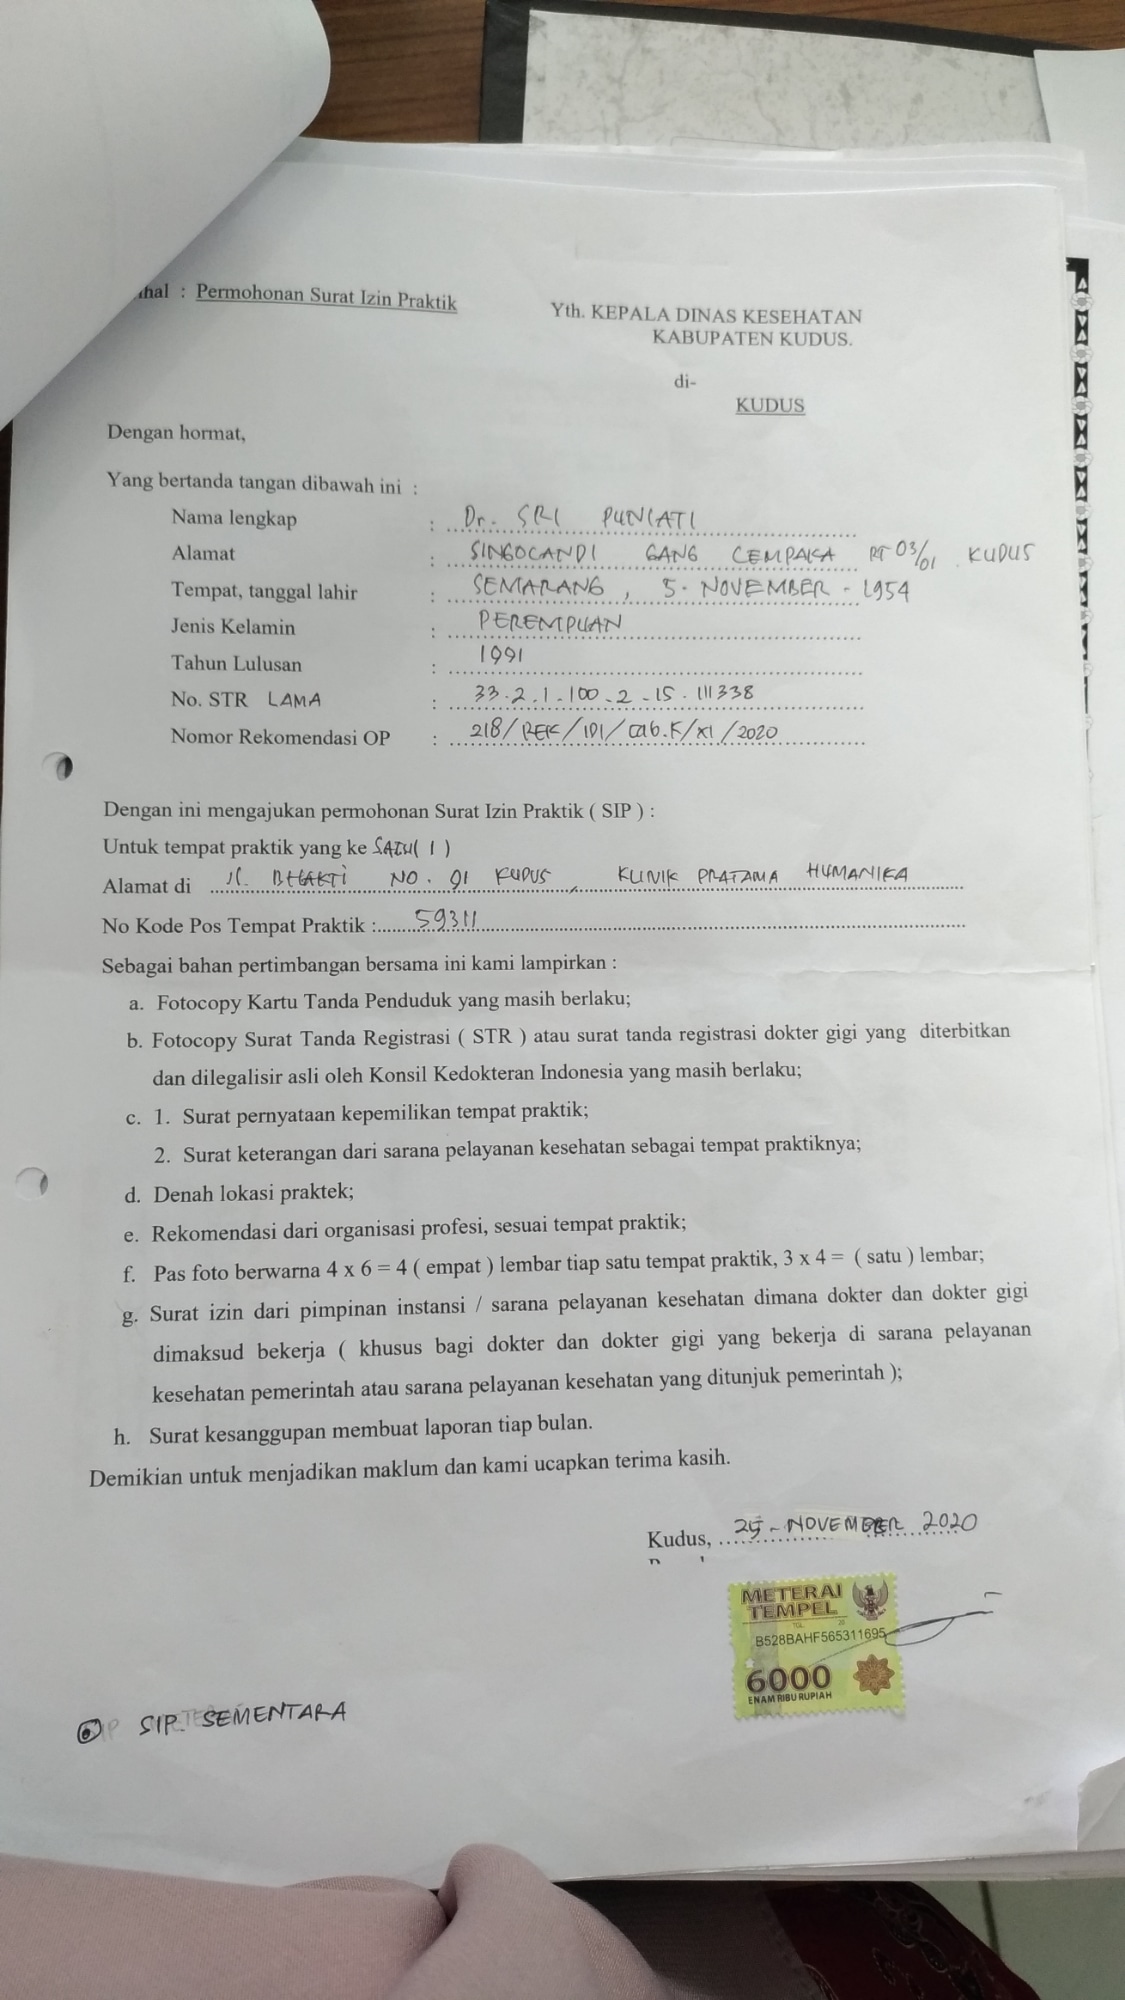 hal : Permohonan Surat Izin Praktik
Yth. KEPALA DINAS KESEHATAN
KABUPATEN KUDUS.
di-
KUDUS
Dengan hormat,
Yang bertanda tangan dibawah ini :
Nama lengkap : Dr. SRI PUNIATI
Alamat : SINGOCANDI GANG CEMPAKA RT 03/01 KUDUS
Tempat, tanggal lahir : SEMARANG, 5 - NOVEMBER - 1954
Jenis Kelamin : PEREMPUAN
Tahun Lulusan : 1991
No. STR LAMA : 33.2.1.100.2.15.111338
Nomor Rekomendasi OP : 218/REK/IDI/Cab.K/XI/2020
Dengan ini mengajukan permohonan Surat Izin Praktik ( SIP ) :
Untuk tempat praktik yang ke SATU ( 1 )
Alamat di Jl. BHAKTI NO. 91 KUDUS, KLINIK PRATAMA HUMANIKA
No Kode Pos Tempat Praktik : 59311
Sebagai bahan pertimbangan bersama ini kami lampirkan :
a. Fotocopy Kartu Tanda Penduduk yang masih berlaku;
b. Fotocopy Surat Tanda Registrasi ( STR ) atau surat tanda registrasi dokter gigi yang diterbitkan
dan dilegalisir asli oleh Konsil Kedokteran Indonesia yang masih berlaku;
c. 1. Surat pernyataan kepemilikan tempat praktik;
2. Surat keterangan dari sarana pelayanan kesehatan sebagai tempat praktiknya;
d. Denah lokasi praktek;
e. Rekomendasi dari organisasi profesi, sesuai tempat praktik;
f. Pas foto berwarna 4 x 6 = 4 ( empat ) lembar tiap satu tempat praktik, 3 x 4 = ( satu ) lembar;
g. Surat izin dari pimpinan instansi / sarana pelayanan kesehatan dimana dokter dan dokter gigi
dimaksud bekerja ( khusus bagi dokter dan dokter gigi yang bekerja di sarana pelayanan
kesehatan pemerintah atau sarana pelayanan kesehatan yang ditunjuk pemerintah );
h. Surat kesanggupan membuat laporan tiap bulan.
Demikian untuk menjadikan maklum dan kami ucapkan terima kasih.
Kudus, 25 - NOVEMBER 2020
METERAI
TEMPEL
TGL. 20
B528BAHF565311695
6000
ENAM RIBU RUPIAH
SIP SEMENTARA